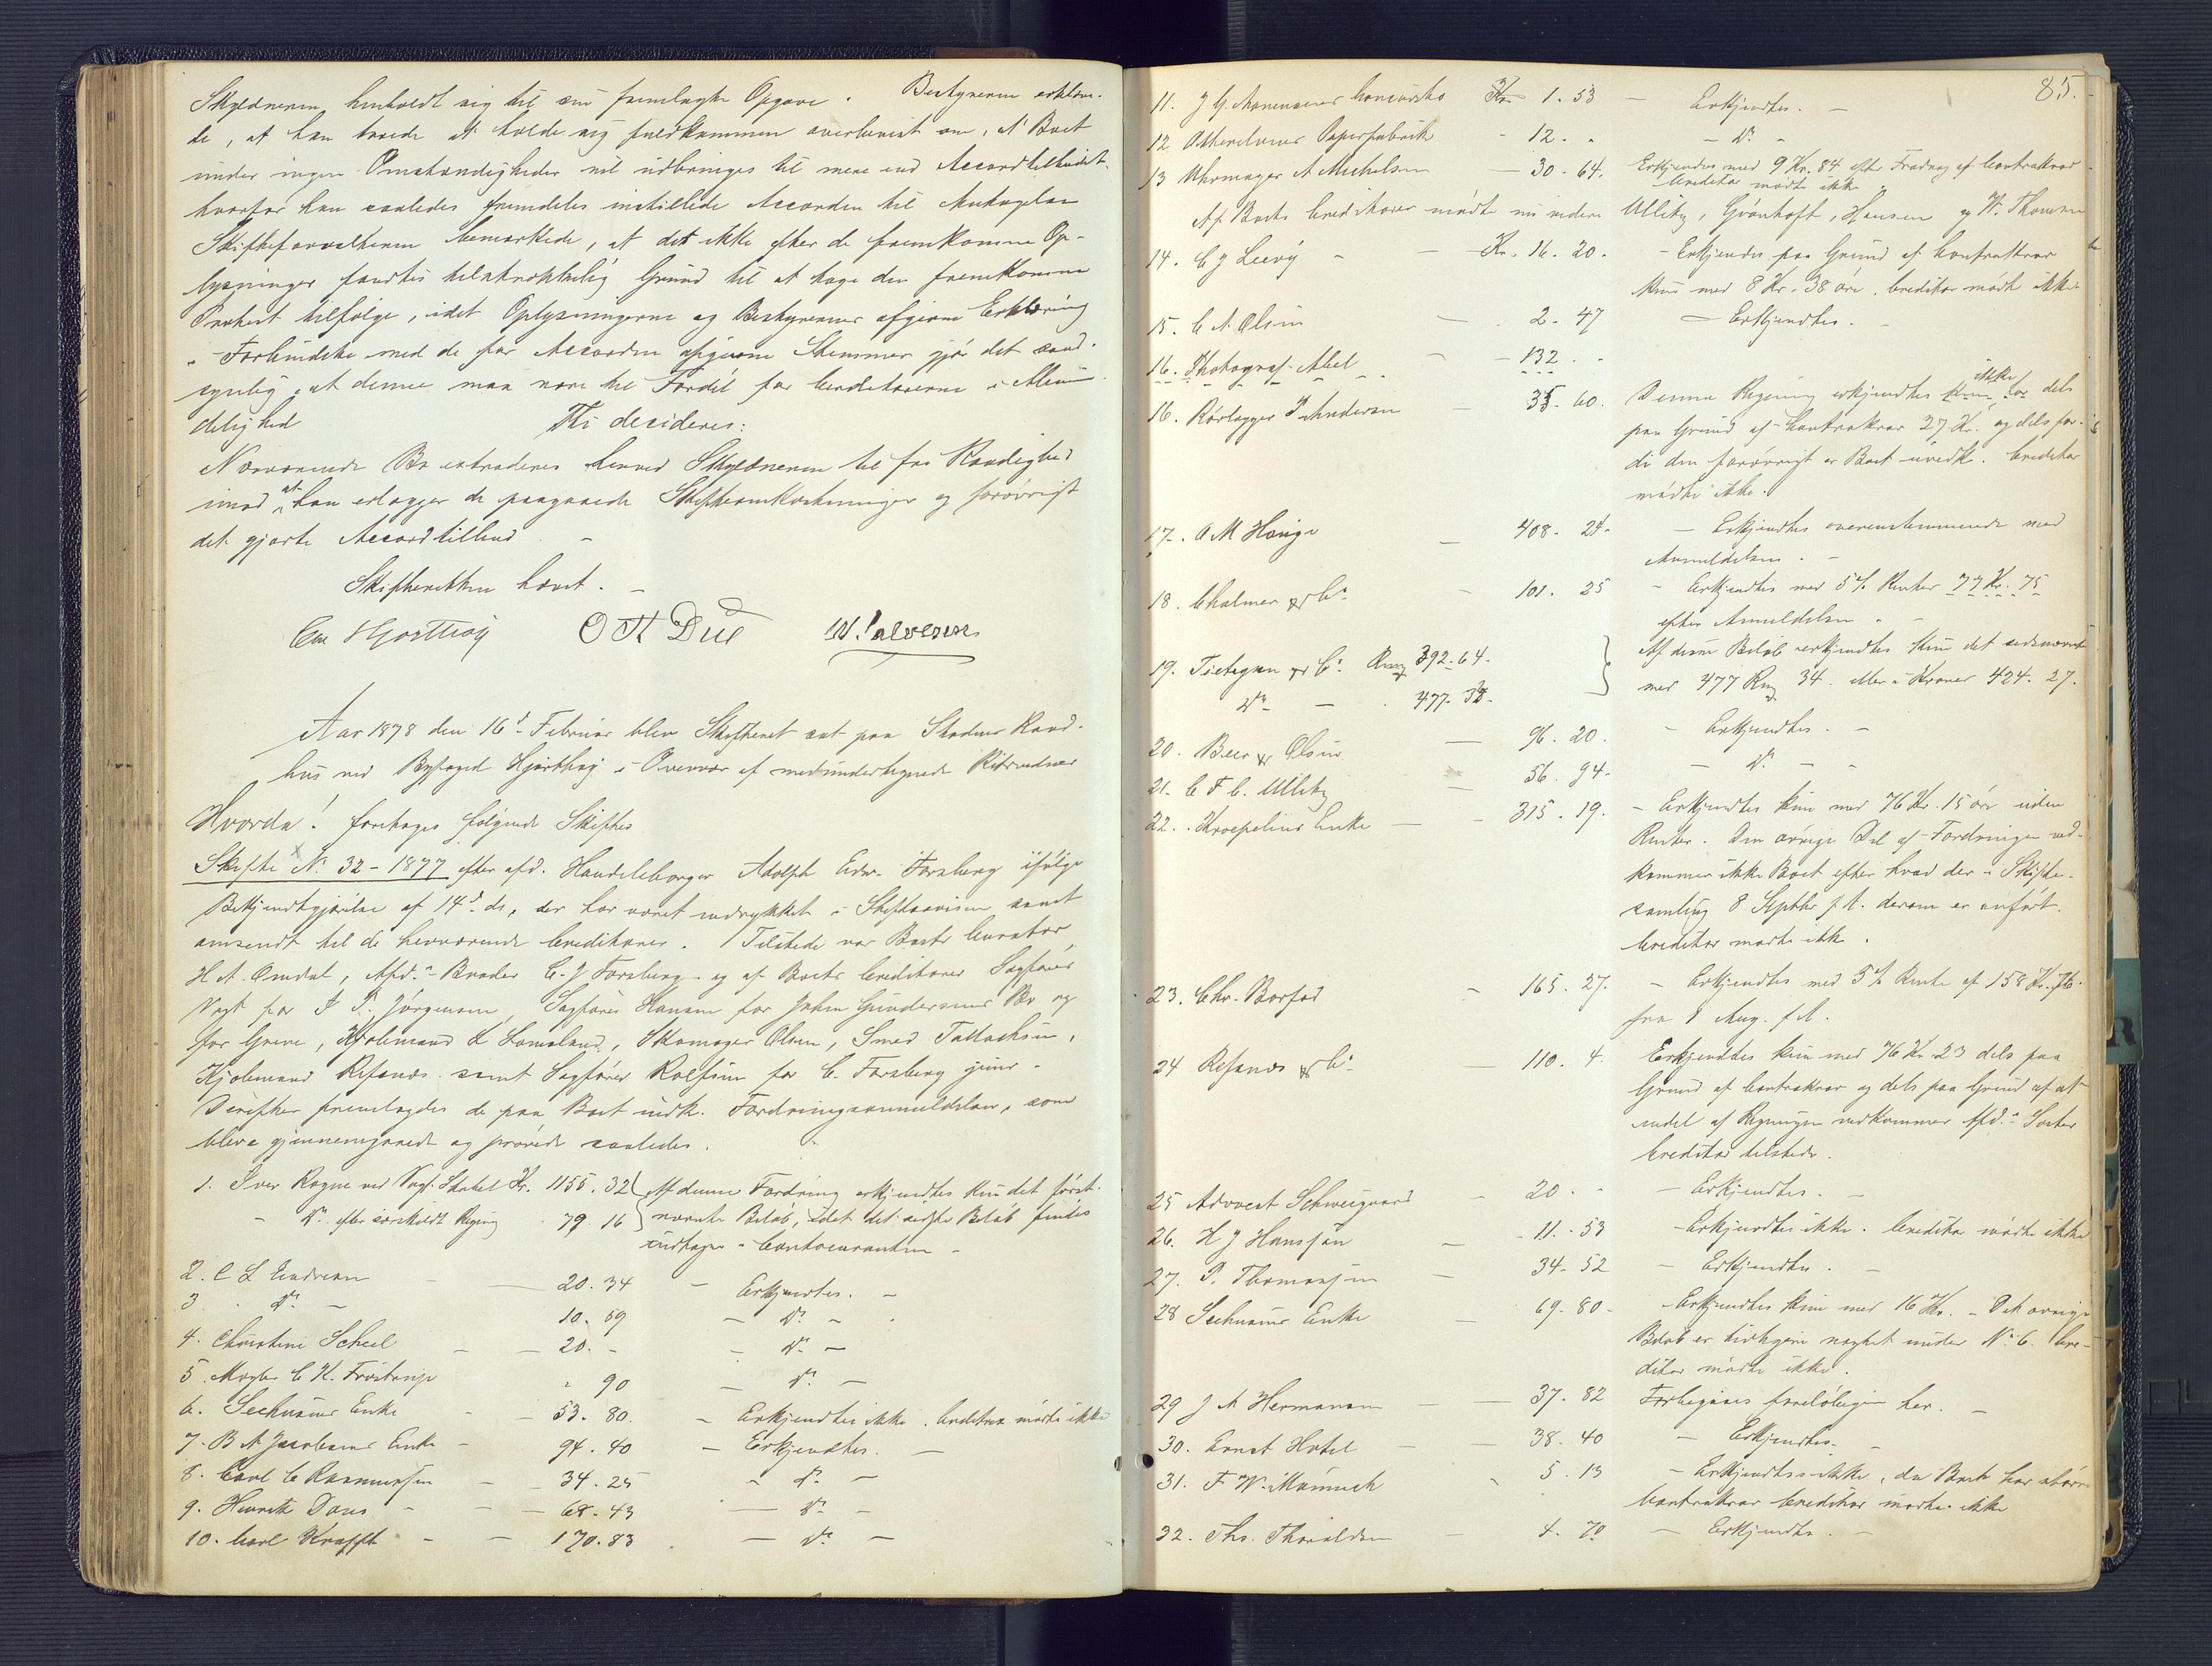 Skyldneren henholdt sig til sin fremlagte Opgave. Bestyreren erklære-
de, at han troede at holde sig fuldkommen overbevist om, at Boet
under ingen Omstændigheder vil udbringes til mere end Accordtilbudet
hvorfor han saaledes fremdeles instillede Accorden til Antagelse
Skifteforvalteren bemærkede, at det ikke efter de fremkomne Op-
lysninger fandtes tilstrækkelig Grund til at tage den fremkomne
Protest tilfølge, idet Oplysningerne og Bestyrerens afgivne Erklæring
i Forbindelse med de for Accorden afgivne Stemmer gjør det sand-
synlig, at denne maa være til Fordel for Creditorerne i Almin-
delighed
Thi decideres:
Nærværende Bo extraderes herved Skyldneren til fri Raadighed
imod at han erlægger de paagaaede Skifteomkostninger og forøvrigt
det gjorte Accordtilbud. –
Skifteretten hævet. –
Em Hjorthøy O H Due W. Salvesen
Aar 1878 den 16d Februar blev Skifteret sat paa Stadens Raad-
hus ved Byfoged Hjorthøy i Overvær af medundertegnede Retsvidner
Hvorda! foretoges følgende Skifter
Skifte No 32 – 1877 efter afd. Handelsborger Adolph Edw. Forsberg ifølge
Bekjendtgjørelse af 14d ds, der har været indrykket i Stiftsavisen samt
omsendt til de herværende Creditorer. Tilstede var Boets Curator
H A Omdal, Afd.s Broder C. J Forsberg og af Boets Creditorer Sagfører
Vogt for J P. Jørgensen, Sagfører Hansen for John Gundersens Bo og
for Greve, Kjøbmand L Lomeland, Skomager Olsen, Smed Tallaksen,
Kjøbmand Refsnæs samt Sagfører Rolfsen for C. Forsberg junr. –
Derefter fremlagdes de paa Boet indk. Fordringsanmeldelser, som
bleve gjennemgaaede og prøvede saaledes.
1. Iver Rogne ved Vogt. Skabel Kr. 1155. 32 Af denne Fordring erkjendtes kun det først-
– do efter særskildt Regning 79. 16 nævnte Beløb, idet det sidste Beløb findes
indtaget i Contocuranten –
2. C L Endresen – 20. 34 – Erkjendtes. –
3 do – 10. 59 – do –
4. Christine Scheel – 20. – – do –
5. Mægler C K. Frøstrup " 90 – do –
6. Seehusens Enke – 53. 80. – Erkjendtes ikke. Creditor mødte ikke
7. B A Jacobsens Enke – 94. 40 – Erkjendtes. –
8. Carl C Rasmussen – 34. 25 – do –
9. Henrik Dons – 68. 43 – do –
10. Carl Krafft – 170. 83 – do –
85.
11. J G. Monensens Concursbo Kr 1. 53 – Erkjendtes. –
12 Akerselvens Papirfabrik – 12. " – do "
13 Uhrmager A Michelsen – 30. 64. Erkjendes med 9 Kr. 84 efter Fradrag af Contrakrav
Creditor mødte ikke
Af Boets Creditorer mødte nu videre Ulleby, Grønhoft, Hansen og W. Thomsen
14. C J Leevy – – Kr. 16. 20. – Erkjendes paa Grund af Contrakrav
kun med 8 Kr. 38 øre. Creditor mødte ikke
15. C A Olsen – 2. 47 – Erkjendtes. –
16. Photograf Abel – – 132. "
16. Rørlægger P Andersen – 35. 60. Denne Regning erkjendtes ikke dels
paa Grund af Contrakrav 27 Kr. og dels for-
di den forøvrigt er Boet uvedk. Creditor
mødte ikke.
17. O M Hauge – 408. 24. – Erkjendtes overensstemmende med
Anmeldelsen. –
18. Chalmer & Co – 101. 25 – Erkjendtes med 5% Renter 77 Kr. 75
efter Anmeldelsen. –
19. Tietgen & Co Rmg 392. 64. Af disse Beløb erkjendtes kun det sidsnævnte
do – 477. 34. med 477 Rmg 34. eller i Kroner 424. 27.
20. Beer & Olsen – 96. 20. – Erkjendtes. –
21. C F C. Ulleby – 56. 94. – do –
22. Kroepeliens Enke – 315. 19. – Erkjendtes kun med 76 Kr. 15 øre uden
Renter. Den øvrige Del af Fordringen ved-
kommer ikke Boet efter hvad der i Skifte-
samling 8 Septbr f A. derom er anført.
Creditor mødte ikke.
23. Chr. Borfod – 165. 27. – Erkjendtes med 5% Rente af 158 Kr. 76.
fra 1 Aug. f A.
24 Refsnæs & Co – 110. 4. Erkjendtes kun med 76 Kr 23 dels paa
Grund af Contrakrav og dels paa Grund af at
endel af Regningen vedkommer Afd.s Søster
Creditor tilstede.
25 Advocat Schweigaard – 20. " – Erkjendtes. –
26. H J Hanssen – 11. 53 – Erkjendtes ikke. Creditor mødte ikke
27. P. Thomassen – 34. 52 – Erkjendtes. –
28 Seehusens Enke – 69. 80 – Erkjendtes kun med 16 Kr. – Det øvrige
Beløb er tidligere nægtet under No 6. Cre-
ditor mødte ikke.
29 J A Hermansen – 37. 82 Forbigaaes foreløbigen her. –
30. Ernst Hotel – 38. 40 – Erkjendtes. –
31. F W. – 5. 13 – Erkjendtes ikke, da Boet har større
Contrakrav Creditor mødte ikke
32. Ths. Thoraldsen – 4. 70 – Erkjendtes. –